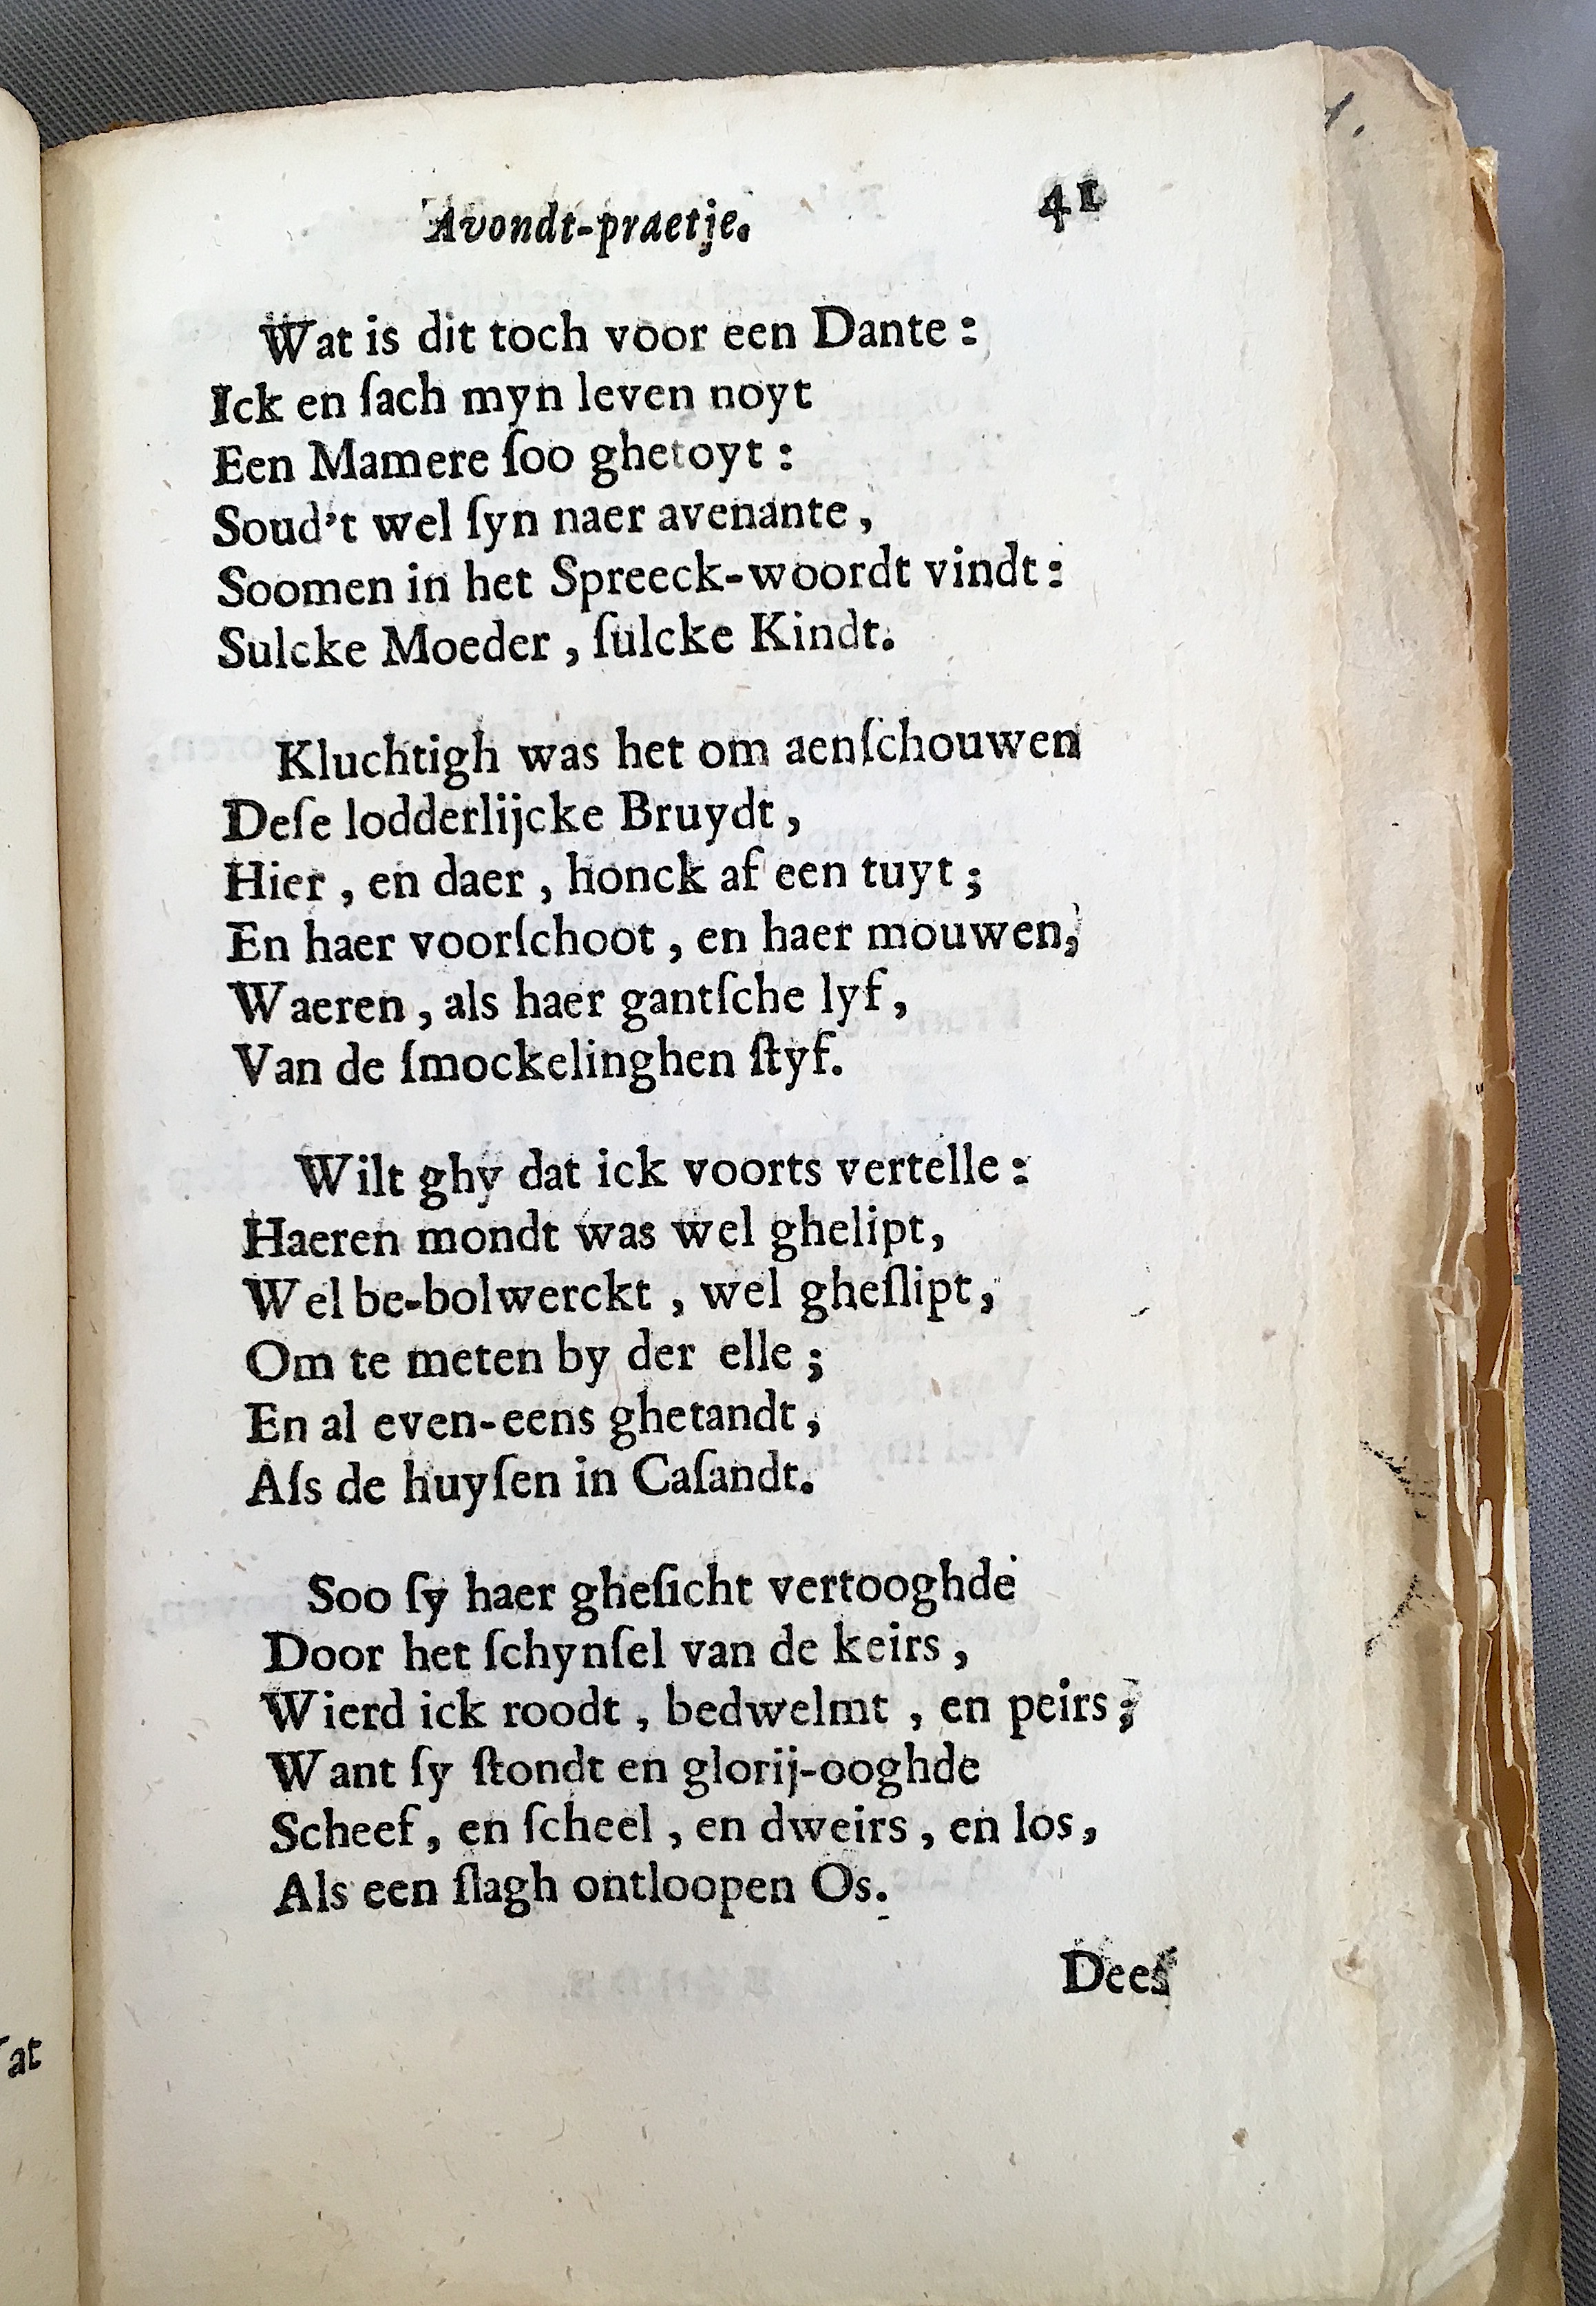 Avondt-praetje. 41
Wat is dit toch voor een Dante:
Ick en ſach myn leven noyt
Een Mamere ſoo ghetoyt:
Soud't wel ſyn naer avenante,
Soomen in het Spreeck-woordt vindt:
Sulcke Moeder, ſulcke Kindt.
Kluchtigh was het om aenſchouwen
Deſe lodderlijcke Bruydt,
Hier, en daer, honck af een tuyt;
En haer voorſchoot, en haer mouwen,
Waeren, als haer gantſche lyf,
Van de ſmockelinghen ſtyf.
Wilt ghy dat ick voorts vertelle:
Haeren mondt was wel ghelipt,
Wel be-bolwerckt, wel gheſlipt,
Om te meten by der elle;
En al even-eens ghetandt,
Aſs de huyſen in Caſandt.
Soo ſy haer gheſicht vertooghde
Door het ſchynſel van de keirs,
Wierd ick roodt, bedwelmt, en peirs;
Want ſy ſtondt en glorij-ooghde
Scheef, en ſcheel, en dweirs, en los,
Als een ſlagh ontloopen Os.
Dees
at